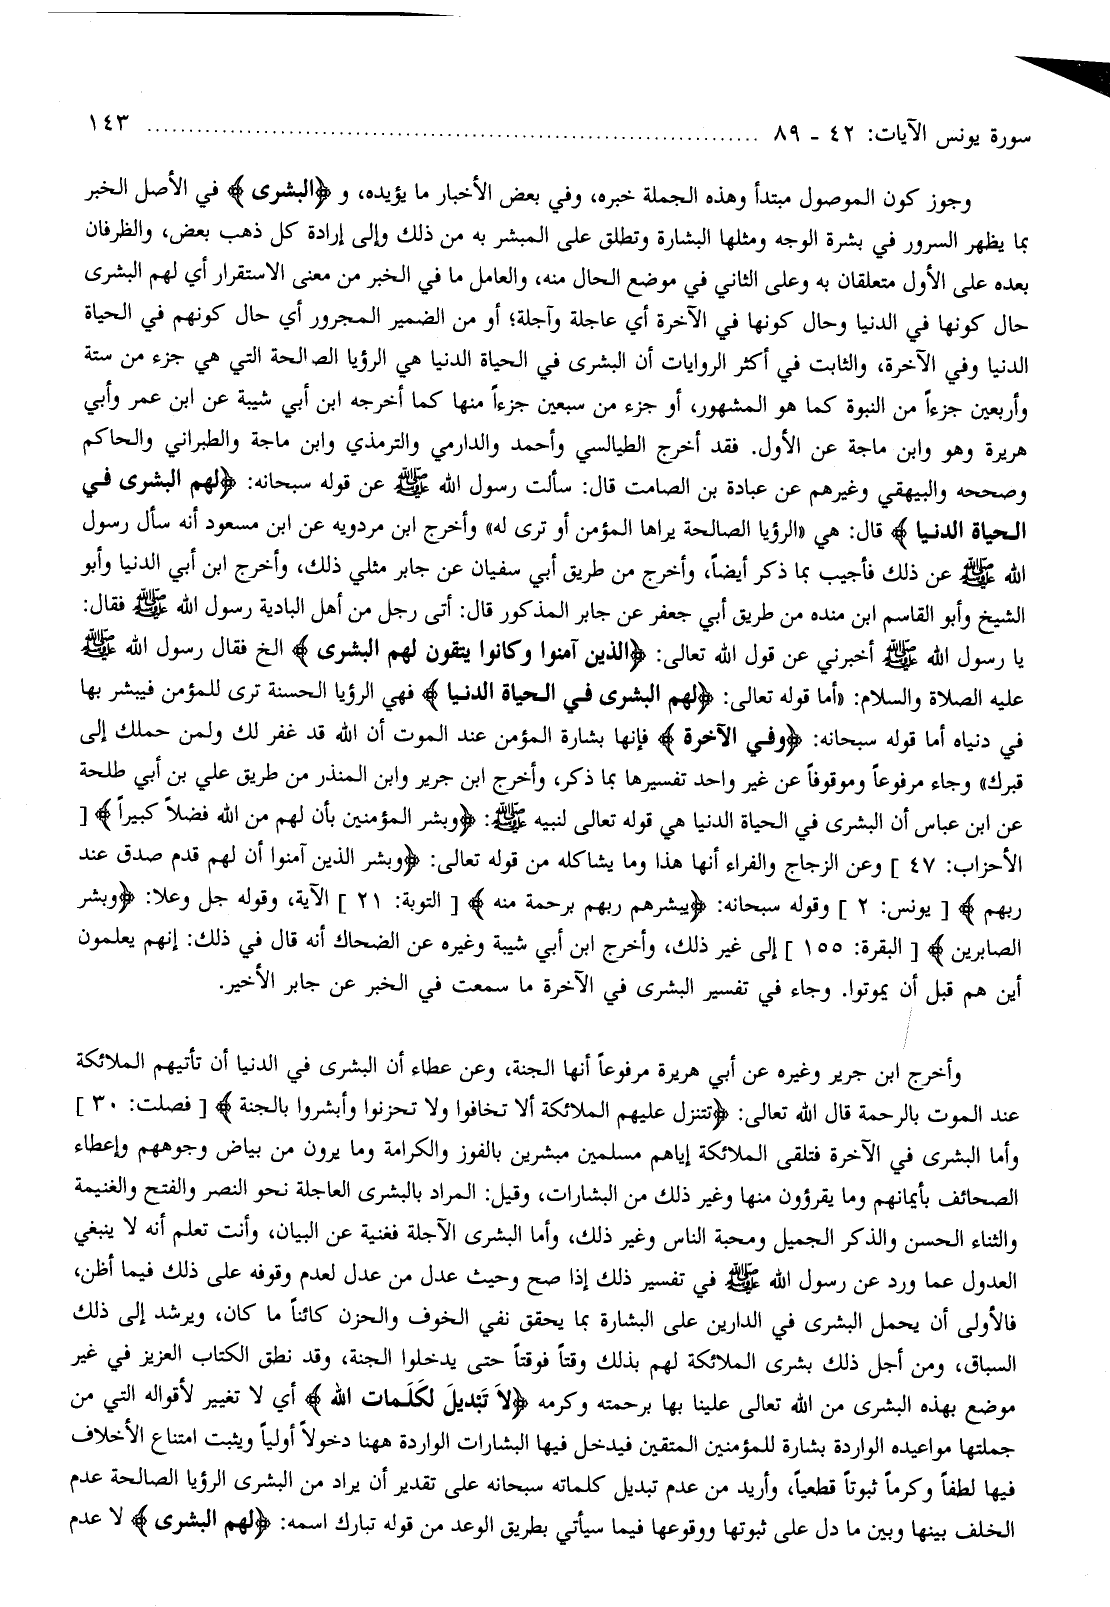 سورة يونس الآيات: ٤٢ - ٨٩ ........................................................................... ١٤٣
وجوز كون الموصول مبتدأ وهذه الجملة خبره، وفي بعض الأخبار ما يؤيده، و ﴿البشرى﴾ في الأصل الخبر
بما يظهر السرور في بشرة الوجه ومثلها البشارة وتطلق على المبشر به من ذلك وإلى إرادة كل ذهب بعض، والظرفان
بعده على الأول متعلقان به وعلى الثاني في موضع الحال منه، والعامل ما في الخبر من معنى الاستقرار أي لهم البشرى
حال كونها في الدنيا وحال كونها في الآخرة أي عاجلة وآجلة؛ أو من الضمير المجرور أي حال كونهم في الحياة
الدنيا وفي الآخرة، والثابت في أكثر الروايات أن البشرى في الحياة الدنيا هي الرؤيا الصالحة التي هي جزء من ستة
وأربعين جزءاً من النبوة كما هو المشهور، أو جزء من سبعين جزءاً منها كما أخرجه ابن أبي شيبة عن ابن عمر وأبي
هريرة وهو وابن ماجة عن الأول. فقد أخرج الطيالسي وأحمد والدارمي والترمذي وابن ماجة والطبراني والحاكم
وصححه والبيهقي وغيرهم عن عبادة بن الصامت قال: سألت رسول الله ﷺ عن قوله سبحانه: ﴿لهم البشرى في
الحياة الدنيا﴾ قال: هي «الرؤيا الصالحة يراها المؤمن أو ترى له» وأخرج ابن مردويه عن ابن مسعود أنه سأل رسول
الله ﷺ عن ذلك فأجيب بما ذكر أيضاً، وأخرج من طريق أبي سفيان عن جابر مثلي ذلك، وأخرج ابن أبي الدنيا وأبو
الشيخ وأبو القاسم ابن منده من طريق أبي جعفر عن جابر المذكور قال: أتى رجل من أهل البادية رسول الله ﷺ فقال:
يا رسول الله ﷺ أخبرني عن قول الله تعالى: ﴿الذين آمنوا وكانوا يتقون لهم البشرى﴾ الخ فقال رسول الله ﷺ
عليه الصلاة والسلام: «أما قوله تعالى: ﴿لهم البشرى في الحياة الدنيا﴾ فهي الرؤيا الحسنة ترى للمؤمن فيبشر بها
في دنياه أما قوله سبحانه: ﴿وفي الآخرة﴾ فإنها بشارة المؤمن عند الموت أن الله قد غفر لك ولمن حملك إلى
قبرك» وجاء مرفوعاً وموقوفاً عن غير واحد تفسيرها بما ذكر، وأخرج ابن جرير وابن المنذر من طريق علي بن أبي طلحة
عن ابن عباس أن البشرى في الحياة الدنيا هي قوله تعالى لنبيه ﷺ: ﴿وبشر المؤمنين بأن لهم من الله فضلاً كبيراً﴾ [
الأحزاب: ٤٧ ] وعن الزجاج والفراء أنها هذا وما يشاكله من قوله تعالى: ﴿وبشر الذين آمنوا أن لهم قدم صدق عند
ربهم﴾ [ يونس: ٢ ] وقوله سبحانه: ﴿يبشرهم ربهم برحمة منه﴾ [ التوبة: ٢١ ] الآية، وقوله جل وعلا: ﴿وبشر
الصابرين﴾ [ البقرة: ١٥٥ ] إلى غير ذلك، وأخرج ابن أبي شيبة وغيره عن الضحاك أنه قال في ذلك: إنهم يعلمون
أين هم قبل أن يموتوا. وجاء في تفسير البشرى في الآخرة ما سمعت في الخبر عن جابر الأخير.
وأخرج ابن جرير وغيره عن أبي هريرة مرفوعاً أنها الجنة، وعن عطاء أن البشرى في الدنيا أن تأتيهم الملائكة
عند الموت بالرحمة قال الله تعالى: ﴿تتنزل عليهم الملائكة ألا تخافوا ولا تحزنوا وأبشروا بالجنة﴾ [ فصلت: ٣٠ ]
وأما البشرى في الآخرة فتلقى الملائكة إياهم مسلمين مبشرين بالفوز والكرامة وما يرون من بياض وجوههم وإعطاء
الصحائف بأيمانهم وما يقرؤون منها وغير ذلك من البشارات، وقيل: المراد بالبشرى العاجلة نحو النصر والفتح والغنيمة
والثناء الحسن والذكر الجميل ومحبة الناس وغير ذلك، وأما البشرى الآجلة فغنية عن البيان، وأنت تعلم أنه لا ينبغي
العدول عما ورد عن رسول الله ﷺ في تفسير ذلك إذا صح وحيث عدل من عدل لعدم وقوفه على ذلك فيما أظن،
فالأولى أن يحمل البشرى في الدارين على البشارة بما يحقق نفي الخوف والحزن كائناً ما كان، ويرشد إلى ذلك
السباق، ومن أجل ذلك بشرى الملائكة لهم بذلك وقتاً فوقتاً حتى يدخلوا الجنة، وقد نطق الكتاب العزيز في غير
موضع بهذه البشرى من الله تعالى علينا بها برحمته وكرمه ﴿لاَ تَبْديلَ لكَلَمات الله﴾ أي لا تغيير لأقواله التي من
جملتها مواعيده الواردة بشارة للمؤمنين المتقين فيدخل فيها البشارات الواردة ههنا دخولاً أولياً ويثبت امتناع الأخلاف
فيها لطفاً وكرماً ثبوتاً قطعياً، وأريد من عدم تبديل كلماته سبحانه على تقدير أن يراد من البشرى الرؤيا الصالحة عدم
الخلف بينها وبين ما دل على ثبوتها ووقوعها فيما سيأتي بطريق الوعد من قوله تبارك اسمه: ﴿لهم البشرى﴾ لا عدم